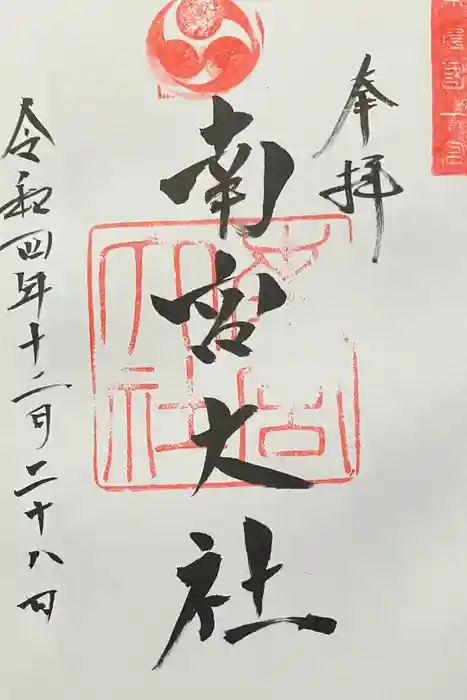 奉拝
南宮大社
令和四年十二月二十八日
南宮大社